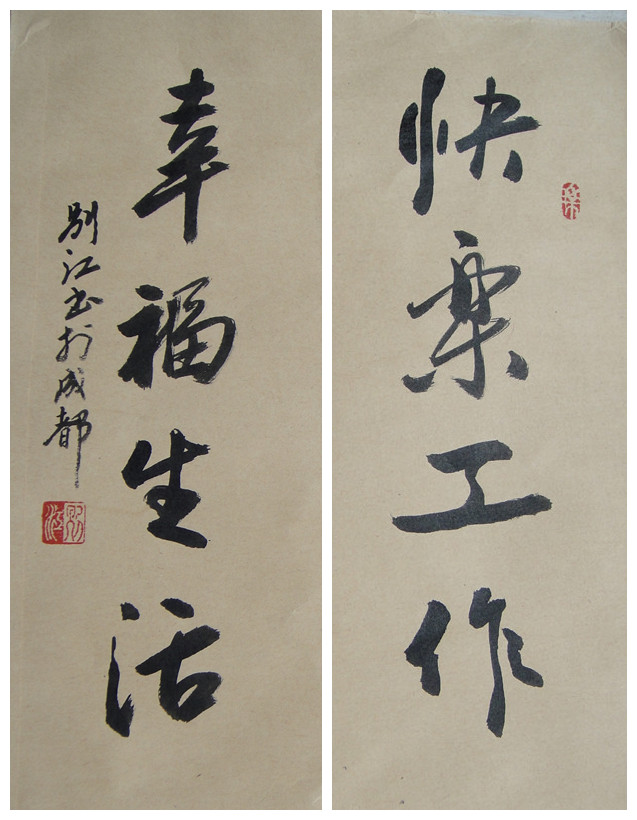 快樂工作
幸福生活
别江书於成都
别江